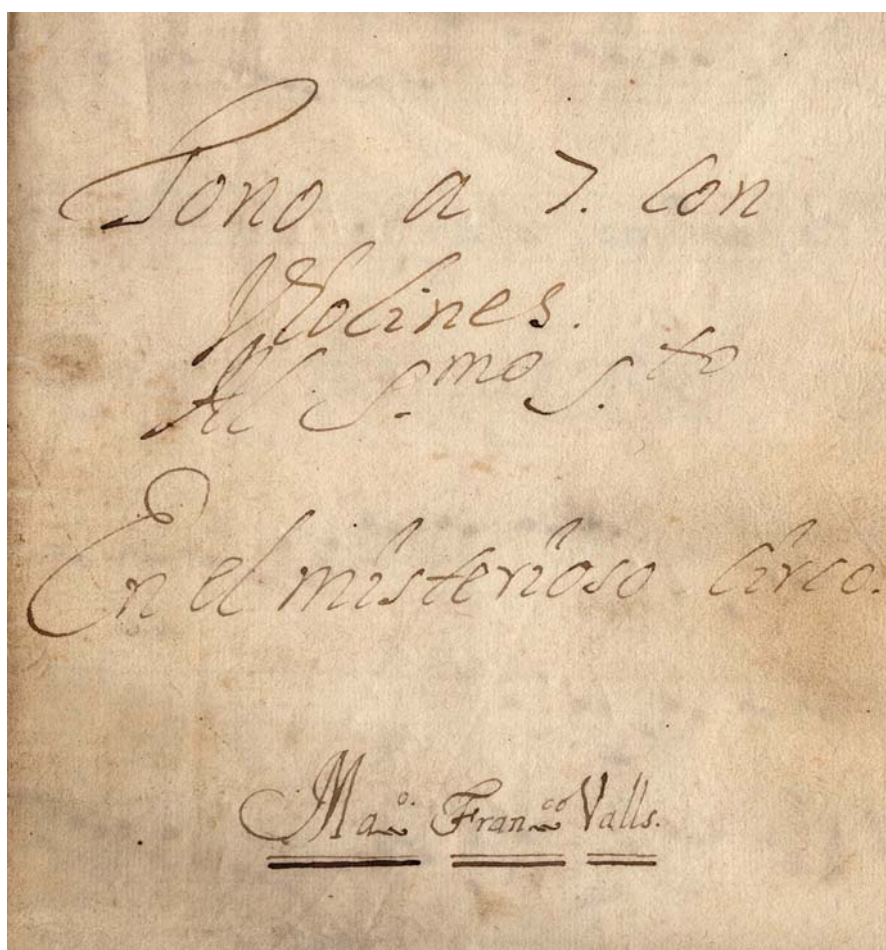 Tono a 7. con
Violines.
Al S.mo S.to
En el misterioso Circo.
Mao. Franco Valls.